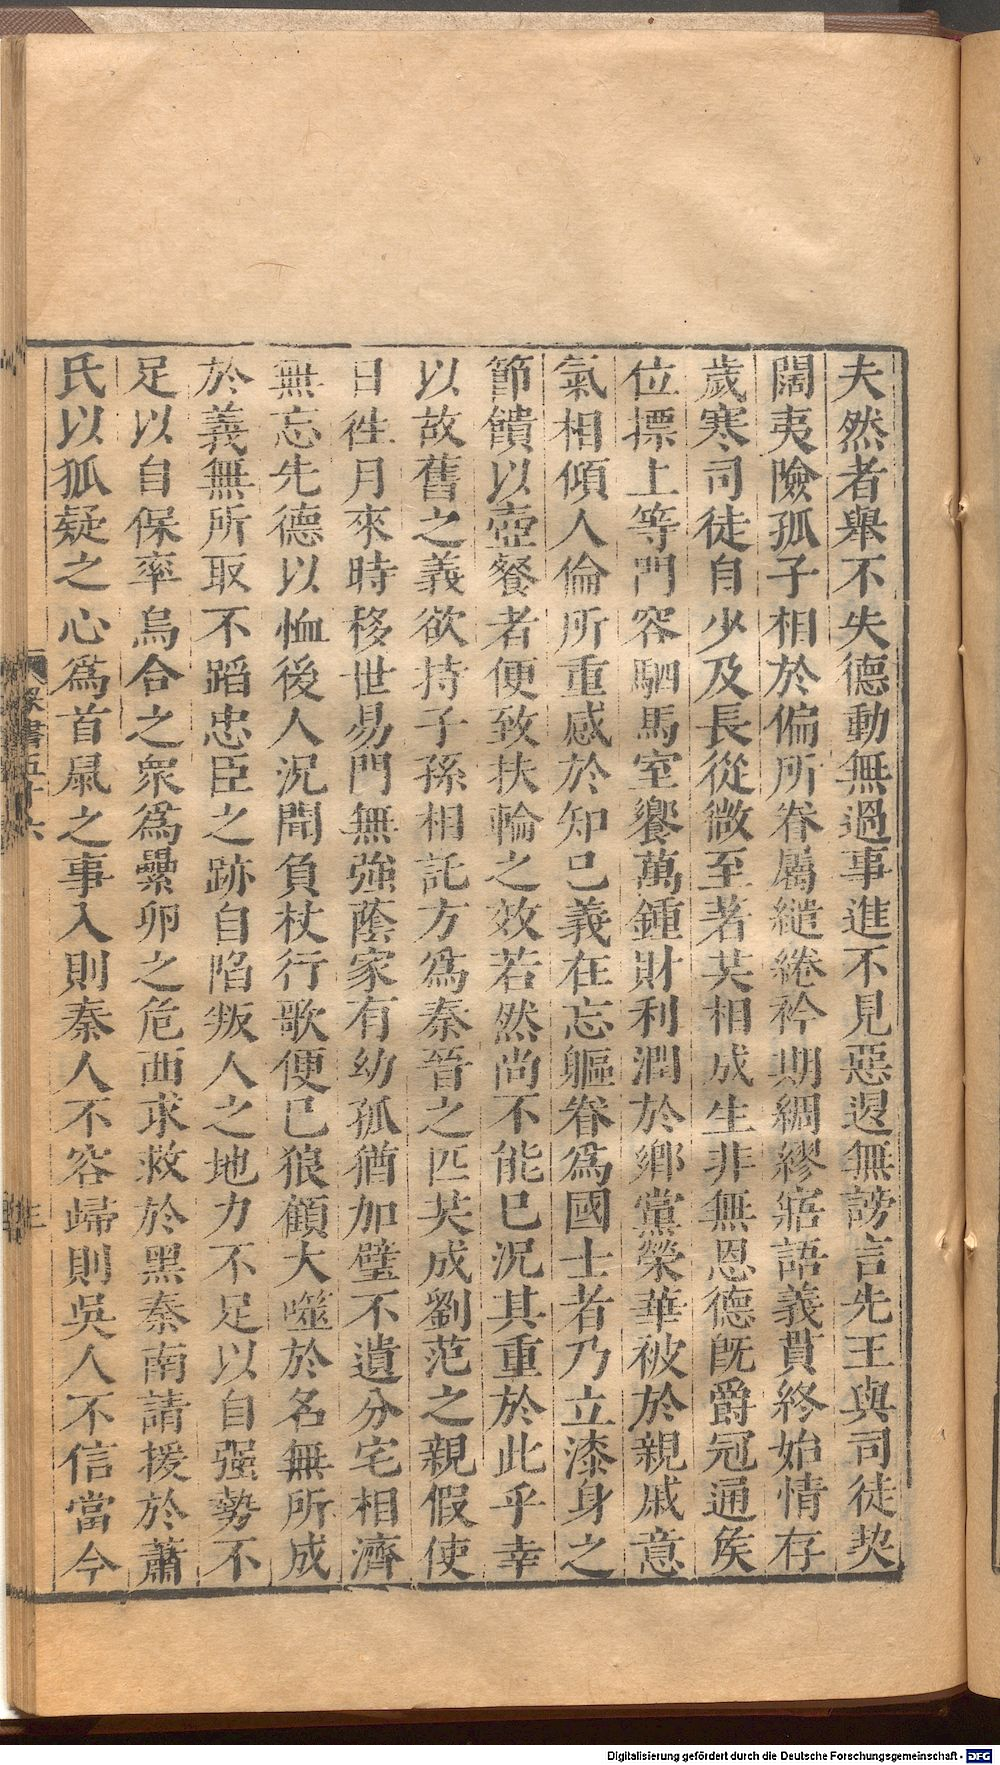 夫然者舉不失德動無過事進不見惡退無謗言先王與司徒契
闊夷險孤子相於偏所眷屬繾綣衿期綢繆寤語義貫終始情存
歲寒司徒自少及長從微至著共相成生非無恩德既爵冠通矦
位摽上等門容駟馬室饗萬鍾財利潤於鄉黨榮華被於親戚意
氣相傾人倫所重感於知己義在忘軀眷為國士者乃立漆身之
節饋以壺餐者便致扶輪之效若然尚不能已況其重於此乎幸
以故舊之義欲持子孫相託方為秦晉之匹共成劉范之親假使
日徃月來時移世易門無強蔭家有幼孤猶加璧不遺分宅相濟
無忘先德以恤後人況聞負杖行歌便已狼顧大噬於名無所成
於義無所取不蹈忠臣之跡自陷叛人之地力不足以自强勢不
足以自保率烏合之衆為纍卵之危西求救於黑秦南請援於蕭
氏以狐疑之心為首鼠之事入則秦人不容歸則吳人不信當今
梁書五十六
三
Digitalisierung gefördert durch die Deutsche Forschungsgemeinschaft - DFG